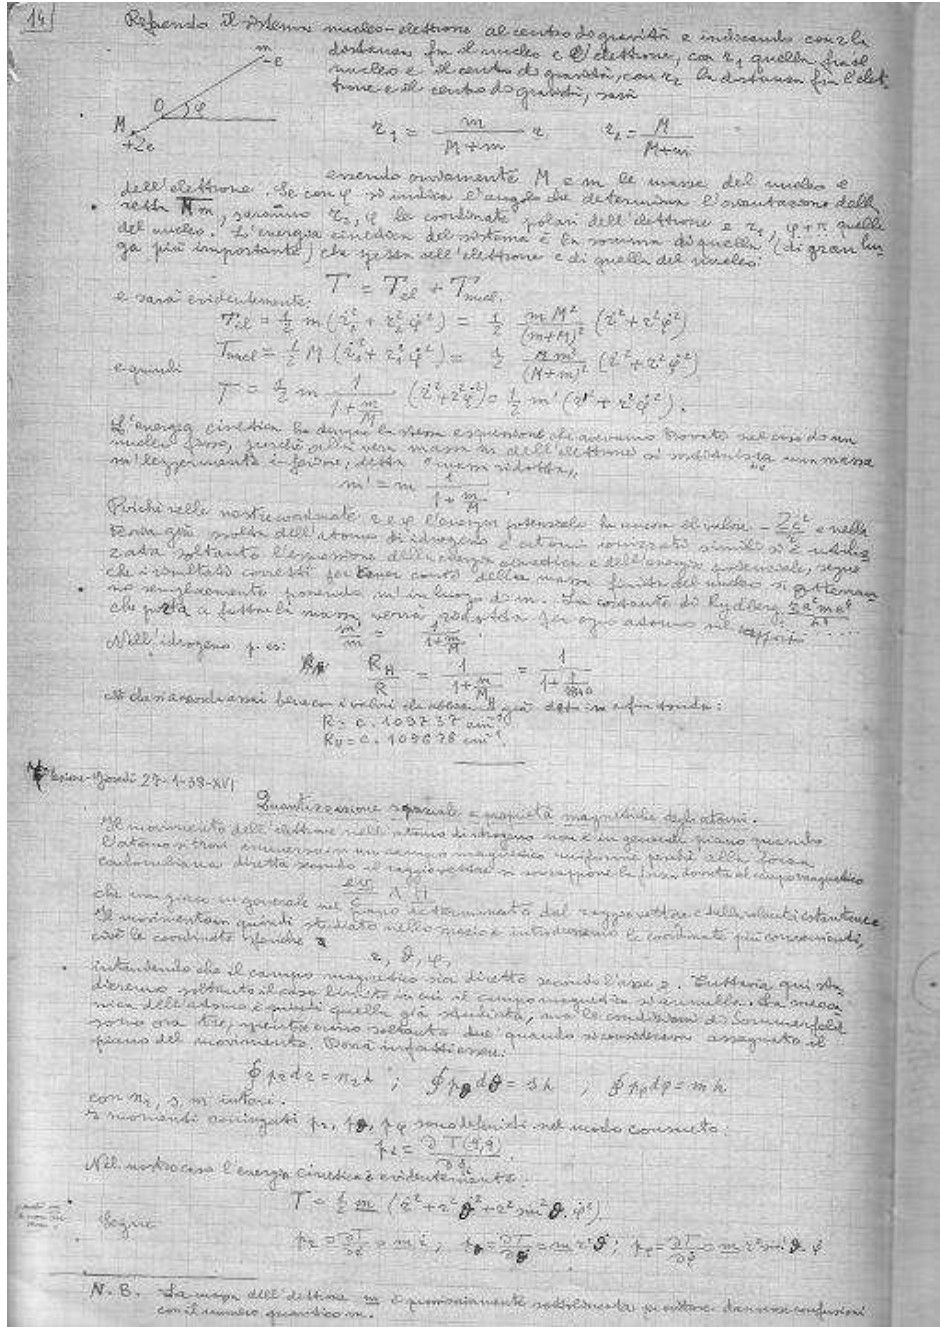 14
Referendo il sistema nucleo-elettrone al centro di gravità e indicando con r la
distanza fra il nucleo e l'elettrone, con r₁ quella fra il
nucleo e il centro di gravità, con r₂ la distanza fra l'elet-
trone e il centro di gravità, sarà
m
-e
O φ
M
+Ze
r₁ = m/(M+m) r    r₂ = M/(M+m)
essendo ovviamente M e m le masse del nucleo e
dell'elettrone. Se con φ si indica l'angolo che determina l'orientazione della
retta Mm, saranno r₂, φ le coordinate polari dell'elettrone e r₁, φ+π quelle
del nucleo. L'energia cinetica del sistema è la somma di quella (di gran lun-
ga più importante) che spetta all'elettrone e di quella del nucleo:
T = T_el + T_nucl.
e sarà evidentemente:
T_el = ½ m (ṙ₂² + r₂² φ̇²) = ½ mM²/(m+M)² (ṙ² + r² φ̇²)
T_nucl = ½ M (ṙ₁² + r₁² φ̇²) = ½ Mm²/(M+m)² (ṙ² + r² φ̇²)
e quindi
T = ½ m 1/(1+m/M) (ṙ² + r² φ̇²) = ½ m' (ṙ² + r² φ̇²).
L'energia cinetica ha dunque la stessa espressione che avevamo trovato nel caso di un
nucleo fisso, purché alla vera massa m dell'elettrone si sostituisca una massa
m' leggermente inferiore, detta "massa ridotta"
m' = m 1/(1+m/M).
Poiché nelle nostre coordinate r e φ l'energia potenziale ha ancora il valore - Ze²/r e nella
teoria già svolta dell'atomo di idrogeno e atomi ionizzati simili si è utiliz-
zata soltanto l'espressione della energia cinetica e dell'energia potenziale, segue
che i risultati corretti per tener conto della massa finita del nucleo si otterran-
no semplicemente ponendo m' in luogo di m. La costante di Rydberg 2π²me⁴/h³
che porta a fattore la massa, verrà ridotta per ogni atomo nel rapporto ....
m'/m = 1/(1+m/M)
Nell'idrogeno p. es:
R_H/R = 1/(1+m/M_H) = 1/(1+1/1840)
che si accorda assai bene con i valori che abbiamo già dato in                 :
R = c. 109737 cm⁻¹
R_H = c. 109678 cm⁻¹.
Lezione - Giovedì 27-1-38-XVI
Quantizzazione spaziale e proprietà magnetiche degli atomi.
Il movimento dell'elettrone nell'atomo di idrogeno non è in generale piano quando
l'atomo si trovi immerso in un campo magnetico uniforme perché alla forza
coulombiana diretta secondo il raggio vettore si sovrappone la forza dovuta al campo magnetico
ev/c ∧ H
che non giace in generale nel piano determinato dal raggio vettore e dalla velocità istantanea.
Il movimento va quindi studiato nello spazio e introduciamo le coordinate più convenienti,
cioè le coordinate sferiche
r, ϑ, φ,
intendendo che il campo magnetico sia diretto secondo l'asse z. Tuttavia qui stu-
dieremo soltanto il caso limite in cui il campo magnetico si annulla. La mecca-
nica dell'atomo è quindi quella già studiata, ma le condizioni di Sommerfeld
sono ora tre, mentre erano soltanto due quando si considerava assegnato il
piano del movimento. Dovrà infatti essere:
∮ p_r dr = n_r h ;  ∮ p_ϑ dϑ = s h  ;  ∮ p_φ dφ = m h
con n_r, s, m interi.
I momenti coniugati p_r, p_ϑ, p_φ sono definiti nel modo consueto:
p_i = ∂T(q, q̇)/∂q̇_i.
Nel nostro caso l'energia cinetica è evidentemente:
T = ½ m (ṙ² + r² ϑ̇² + r² sin²ϑ. φ̇²)
Segue
p_r = ∂T/∂ṙ = m ṙ ;  p_ϑ = ∂T/∂ϑ̇ = m r² ϑ̇ ;  p_φ = ∂T/∂φ̇ = m r² sin²ϑ. φ̇
N. B. La massa dell'elettrone m è provvisoriamente sottolineata per evitare                 confusioni
con il numero quantico m.